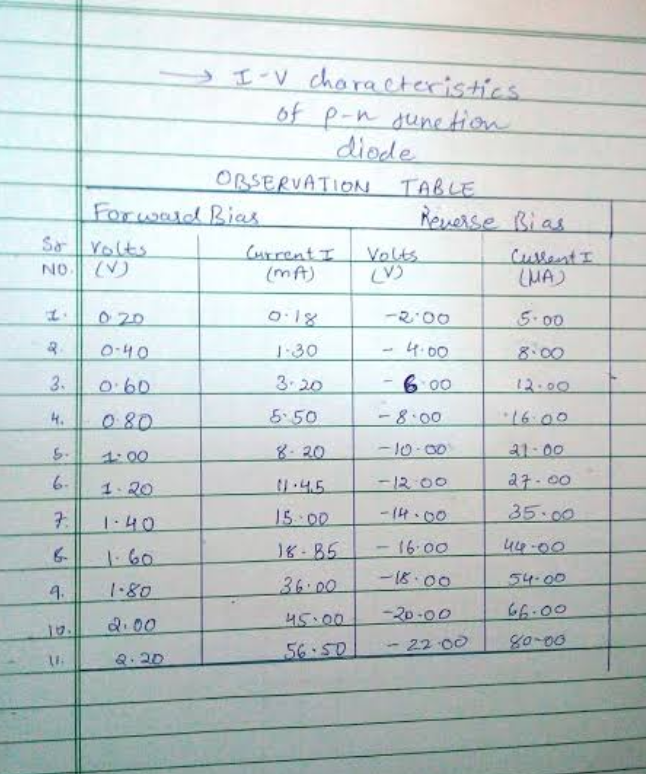 → I-V characteristics
of p-n junction
diode
OBSERVATION TABLE
Forward Bias Reverse Bias
Sr NO. Volts (V) Current I (mA) Volts (V) Current I (μA)
1. 0.20 0.18 -2.00 5.00
2. 0.40 1.30 -4.00 8.00
3. 0.60 3.20 -6.00 12.00
4. 0.80 5.50 -8.00 16.00
5. 1.00 8.20 -10.00 21.00
6. 1.20 11.45 -12.00 27.00
7. 1.40 15.00 -14.00 35.00
8. 1.60 18.85 -16.00 44.00
9. 1.80 36.00 -18.00 54.00
10. 2.00 45.00 -20.00 66.00
11. 2.20 56.50 -22.00 80.00